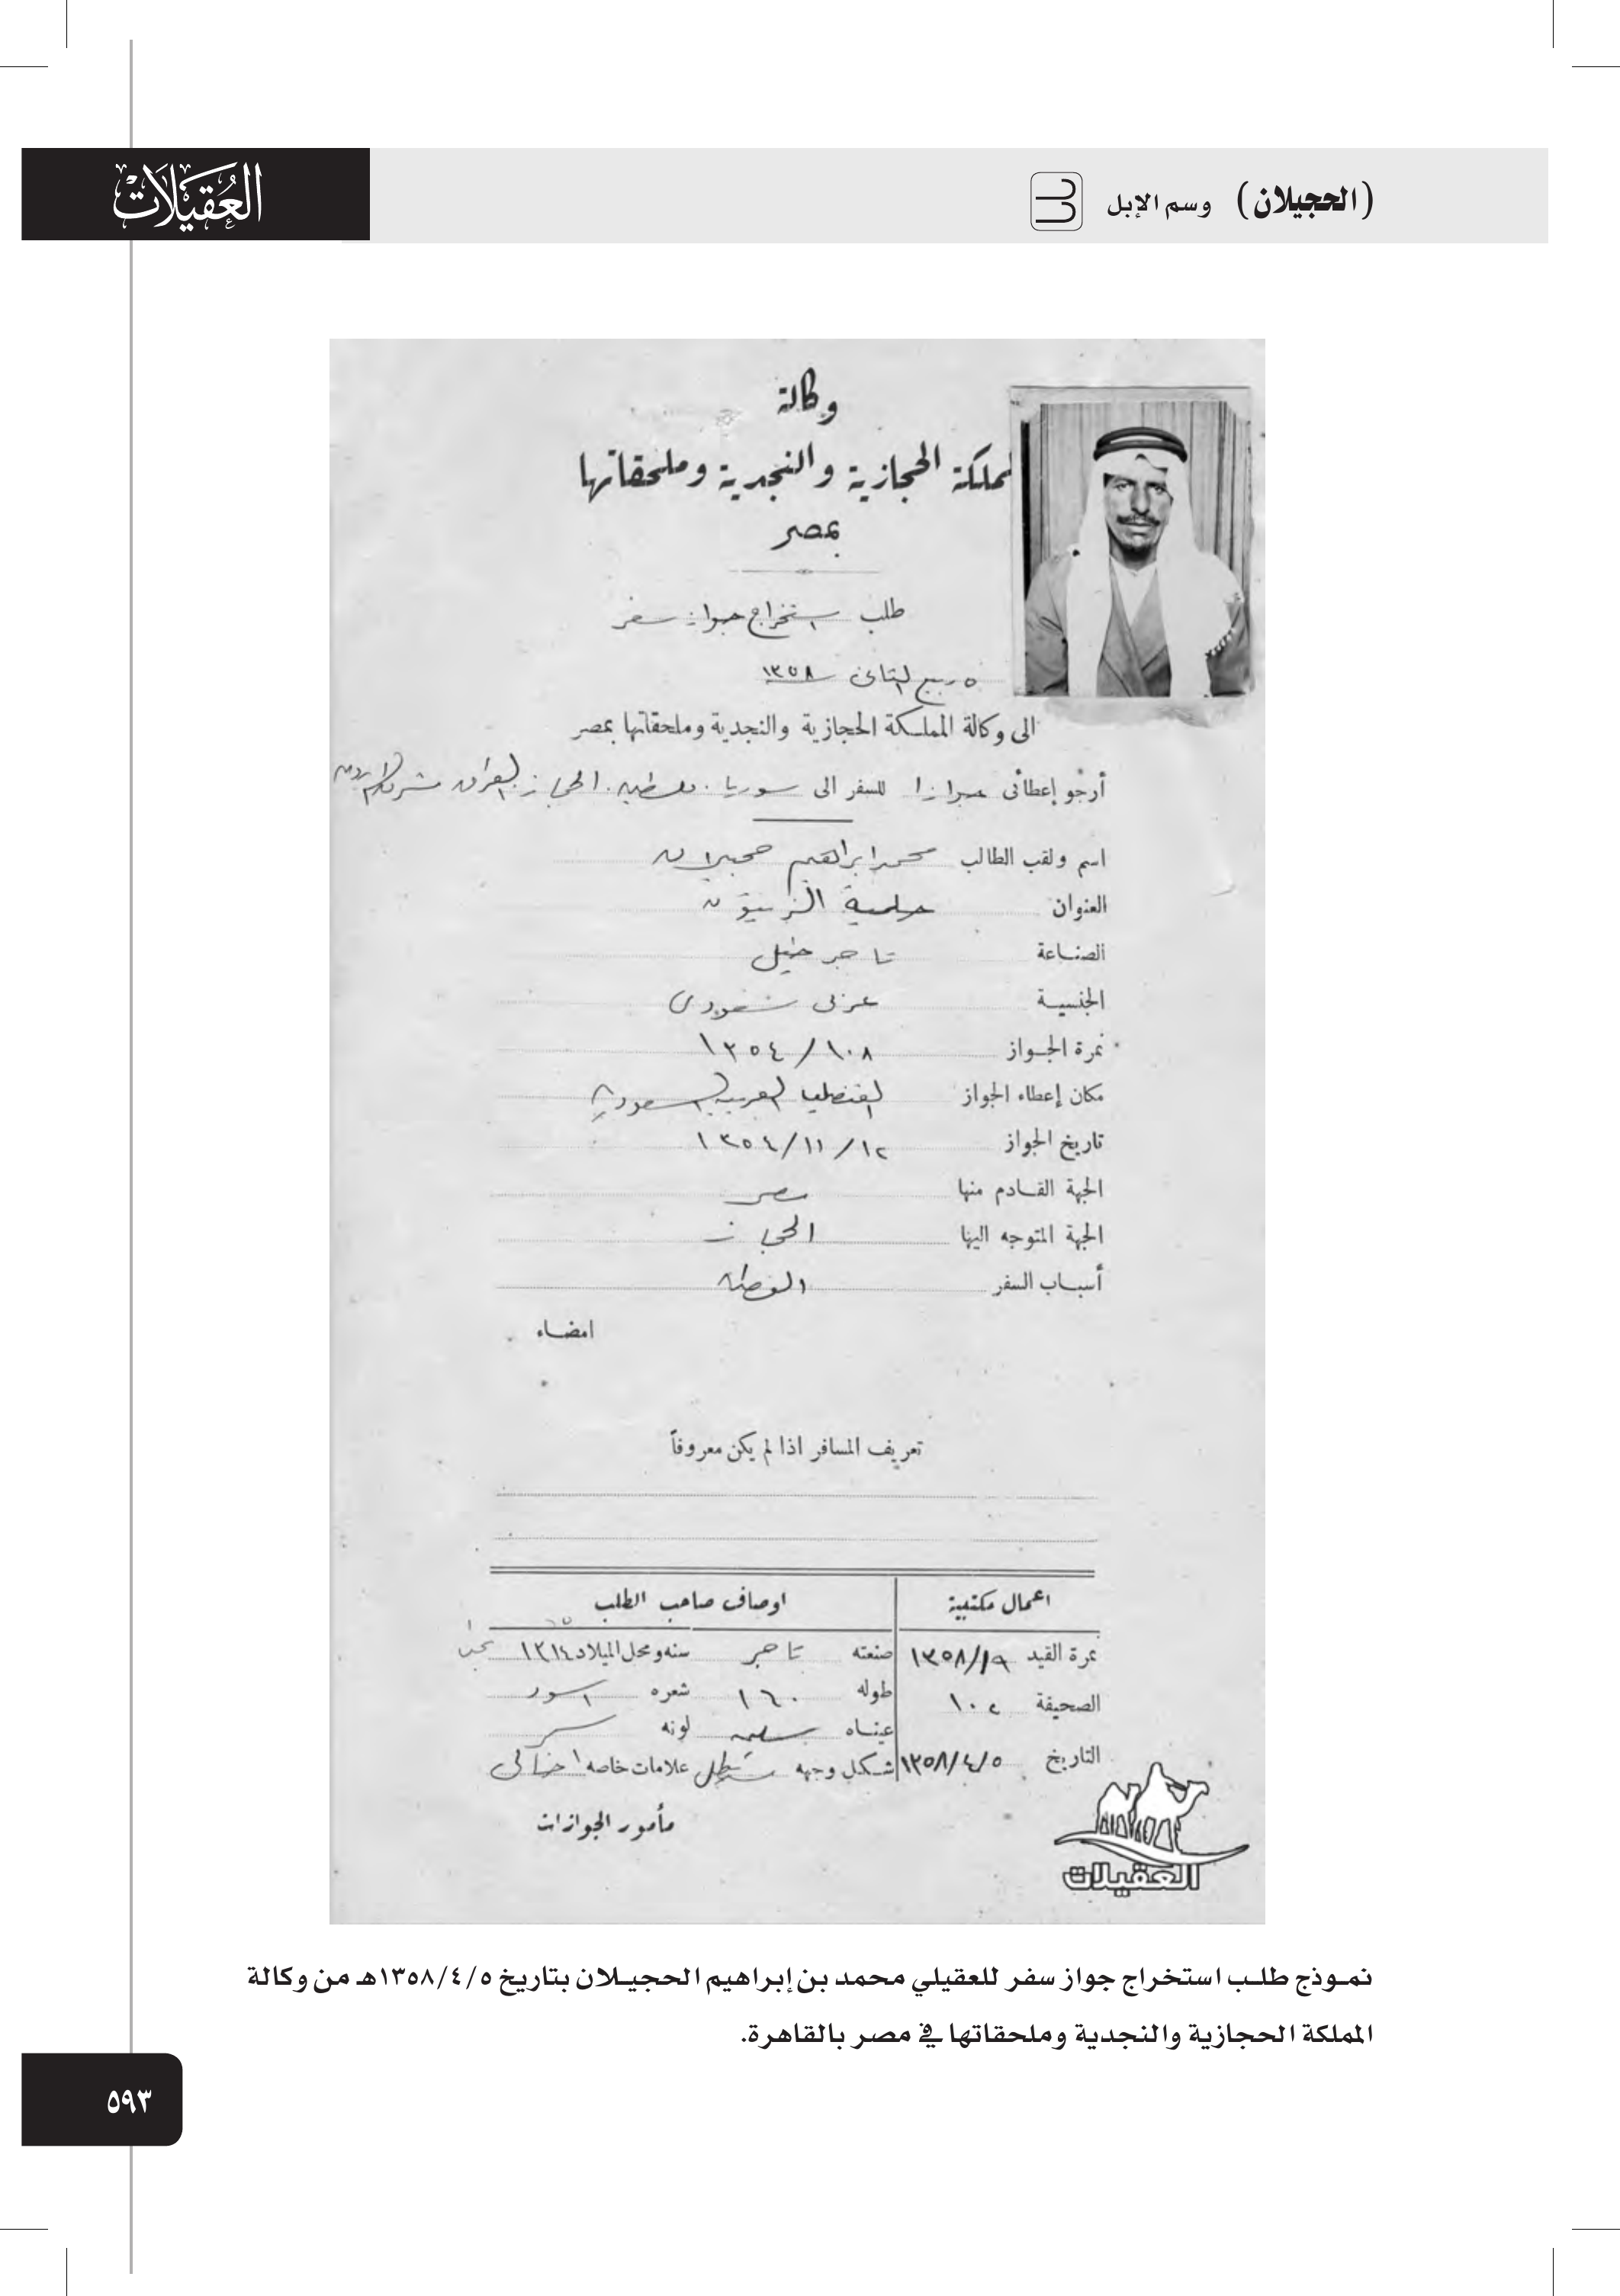 (الحجيلان) وسم الإبل
العقيلات
وكالة
لمملكة الحجازية والنجدية وملحقاتها
بمصر
طلب استخراج جواز سفر
٥ ربيع الثاني سنة ١٣٥٨
الى وكالة المملكة الحجازية والنجدية وملحقاتها بمصر
أرجو إعطائى جوازا للسفر الى سوريا. فلسطين. الحجاز العراق شرق الاردن
اسم ولقب الطالب محمد ابراهيم حجيلان
العنوان حلمية الزيتون
الصناعة تاجر خيل
الجنسية عربى سعودى
نمرة الجواز ١٠٨/١٣٥٤
مكان إعطاء الجواز القنصليه العربيه السعوديه
تاريخ الجواز ١٢/١١/١٣٥٤
الجهة القادم منها مصر
الجهة المتوجه اليها الحجاز
أسباب السفر
امضاء
تعريف المسافر اذا لم يكن معروفاً
اعمال مكتبية اوصاف صاحب الطلب
نمرة القيد ١٩/١٣٥٨ صنعته تاجر سنه ومحل الميلاد ١٣١٤
الصحيفة ١٠٢ طوله ١٦٠ شعره اسود
عيناه سليمه لونه اسمر
التاريخ ٥/٤/١٣٥٨ شكل وجهه مستطيل علامات خاصه
مأمور الجوازات
العقيلات
نموذج طلب استخراج جواز سفر للعقيلي محمد بن إبراهيم الحجيلان بتاريخ ٥/٤/١٣٥٨هـ من وكالة
المملكة الحجازية والنجدية وملحقاتها في مصر بالقاهرة.
٥٩٣